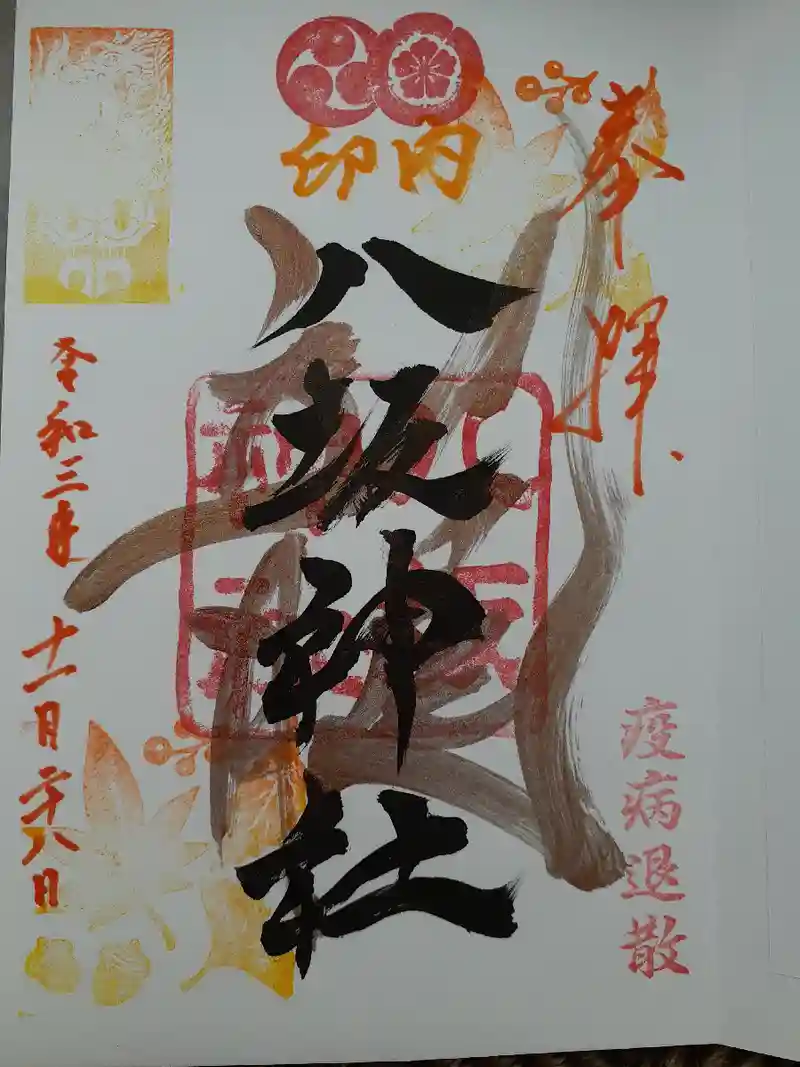 奉拝
疫病退散
内印
八坂神社
令和三年十一月二十八日